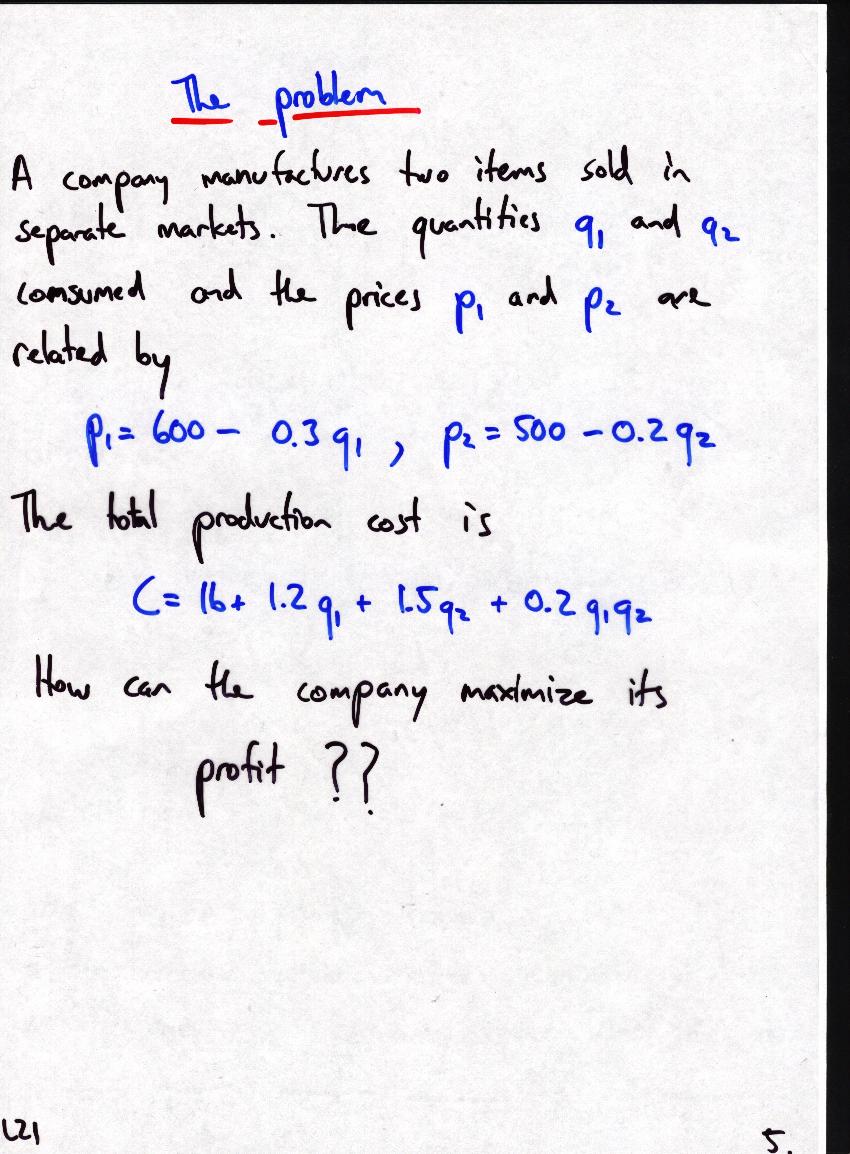 The problem
A company manufactures two items sold in
separate markets. The quantities q₁ and q₂
comsumed and the prices p₁ and p₂ are
related by
p₁ = 600 - 0.3 q₁ , p₂ = 500 - 0.2 q₂
The total production cost is
C = 16 + 1.2 q₁ + 1.5 q₂ + 0.2 q₁q₂
How can the company maximize its
profit ??
L21
5.